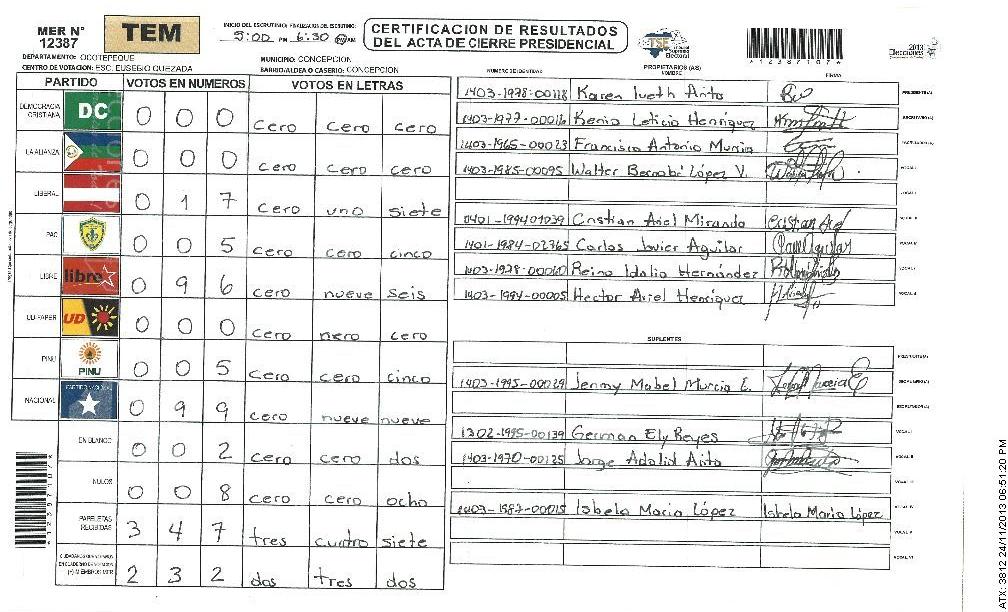 MER N° 12387
TEM
INICIO DEL ESCRUTINIO: FINALIZACION DEL ESCRUTINIO:
5:00 PM 6:30 PM AM
CERTIFICACION DE RESULTADOS
DEL ACTA DE CIERRE PRESIDENCIAL
TSE Tribunal Supremo Electoral
*12387107*
2013 Elecciones
DEPARTAMENTO: OCOTEPEQUE
MUNICIPIO: CONCEPCION
CENTRO DE VOTACION: ESC. EUSEBIO QUEZADA
BARRIO/ALDEA O CASERIO: CONCEPCION
PARTIDO VOTOS EN NUMEROS VOTOS EN LETRAS
DEMOCRACIA CRISTIANA DC 0 0 0 cero cero cero
LA ALIANZA 0 0 0 cero cero cero
LIBERAL 0 1 7 cero uno siete
PAC 0 0 5 cero cero cinco
LIBRE libre 0 9 6 cero nueve seis
UD FAPER UD 0 0 0 cero nero cero
PINU PINU 0 0 5 cero cero cinco
NACIONAL PARTIDO NACIONAL 0 9 9 cero nueve nueve
EN BLANCO 0 0 2 cero cero dos
NULOS 0 0 8 cero cero ocho
PAPELETAS RECIBIDAS 3 4 7 tres cuatro siete
CIUDADANOS QUE VOTARON EN CUADERNO DE VOTACION (+) MIEMBROS MER 2 3 2 dos tres dos
NUMERO DE IDENTIDAD PROPIETARIOS (AS) NOMBRE FIRMA
1403-1978-00118 Karen Iveth Arita PRESIDENTE(A)
1403-1977-00016 Kenia Leticia Henriquez SECRETARIO(A)
1403-1965-00023 Francisco Antonio Murcia ESCRUTADOR(A)
1403-1985-00095 Walter Bernabé López V. VOCAL I
0401-199401039 Cristian Ariel Miranda Cristian Ariel
1401-1984-02365 Carlos Javier Aguilar
1403-1978-00060 Reina Idalia Hernández
1403-1994-00005 Hector Ariel Henriquez
SUPLENTES
PRESIDENTE(A)
1403-1995-00029 Jenny Mabel Murcia E. SECRETARIO(A)
ESCRUTADOR(A)
1302-1995-00139 German Ely Reyes VOCAL I
1403-1970-00125 Jorge Adalid Arita VOCAL II
VOCAL III
1403-1987-00015 Isbela Maria López Isbela Maria López VOCAL IV
VOCAL V
VOCAL VI
*12387107*
ATX: 3812 24/11/2013 06:51:20 PM